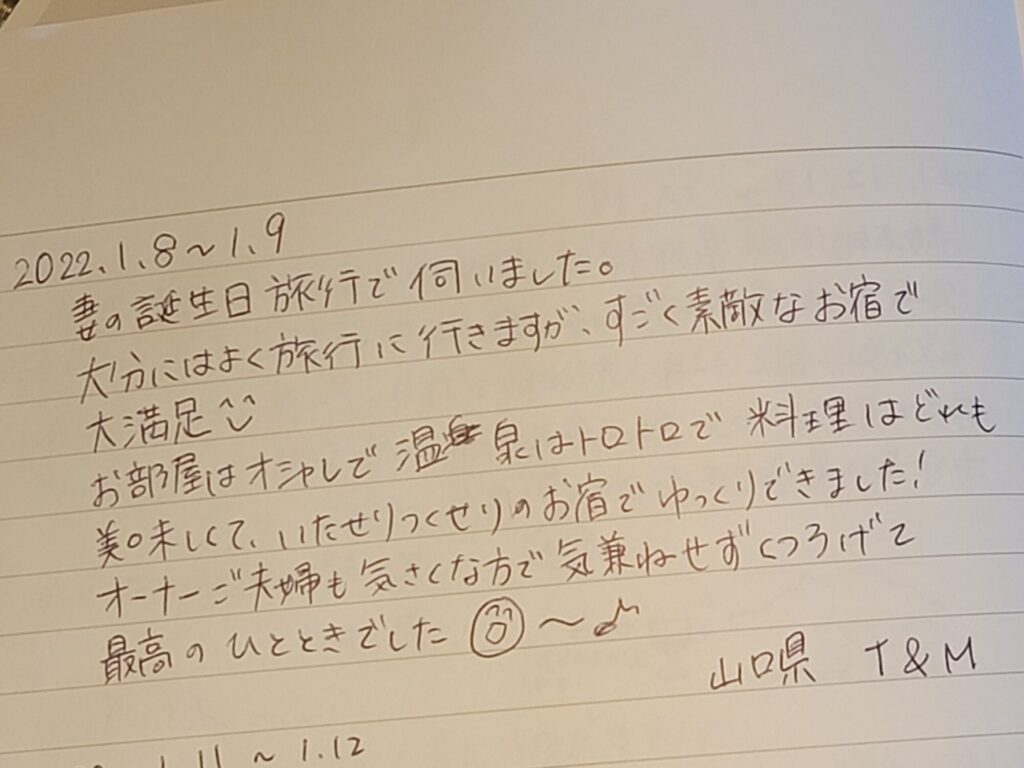 2022.1.8～1.9
妻の誕生日旅行で伺いました。
大分にはよく旅行に行きますが、すごく素敵なお宿で
大満足^^
お部屋はオシャレで温泉はトロトロで料理はどれも
美味しくて、いたせりつくせりのお宿でゆっくりできました!
オーナーご夫婦も気さくな方で気兼ねせずくつろげて
最高のひとときでした～♪
山口県 T&M
1.11～1.12